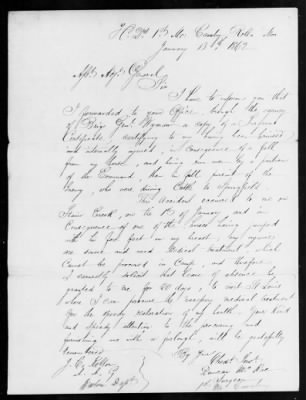 Hd Qrs 1st Mo. Cavalry Rolla Mo
January 13th 1862
Asst Adjt General
Sir
I have to inform you that
I forwarded to your Office through the
of Brig Genl Wyman a copy of a Surgeons
Certificate, certifying to my having been bruised
and internally injured, in consequence of a fall
from my Horse, and being run over by a portion
of the Command, then in full pursuit of the
Enemy, who were driving Cattle to Springfield
This accident occurred to me on
Creek, on the 1st of January, and in
Consequence of one of the horses having jumped
with his fore feet on my breast, my injuries
are severe and need Medical treatment which
Cannot be procured in Camp, and therefore
I earnestly solicit that leave of absence be
granted to me for 20 days, to visit St Louis
where I can procure the necessary medical treatment
for the speedy restoration of my health. Your kind
and speedy attention to the procuring and
furnishing me with a furlough, will be gratefully
remembered
Very Your
Obedt Servt
J. C. Kelton
A. A. G.
Western Dept
1st Mo Cavalry